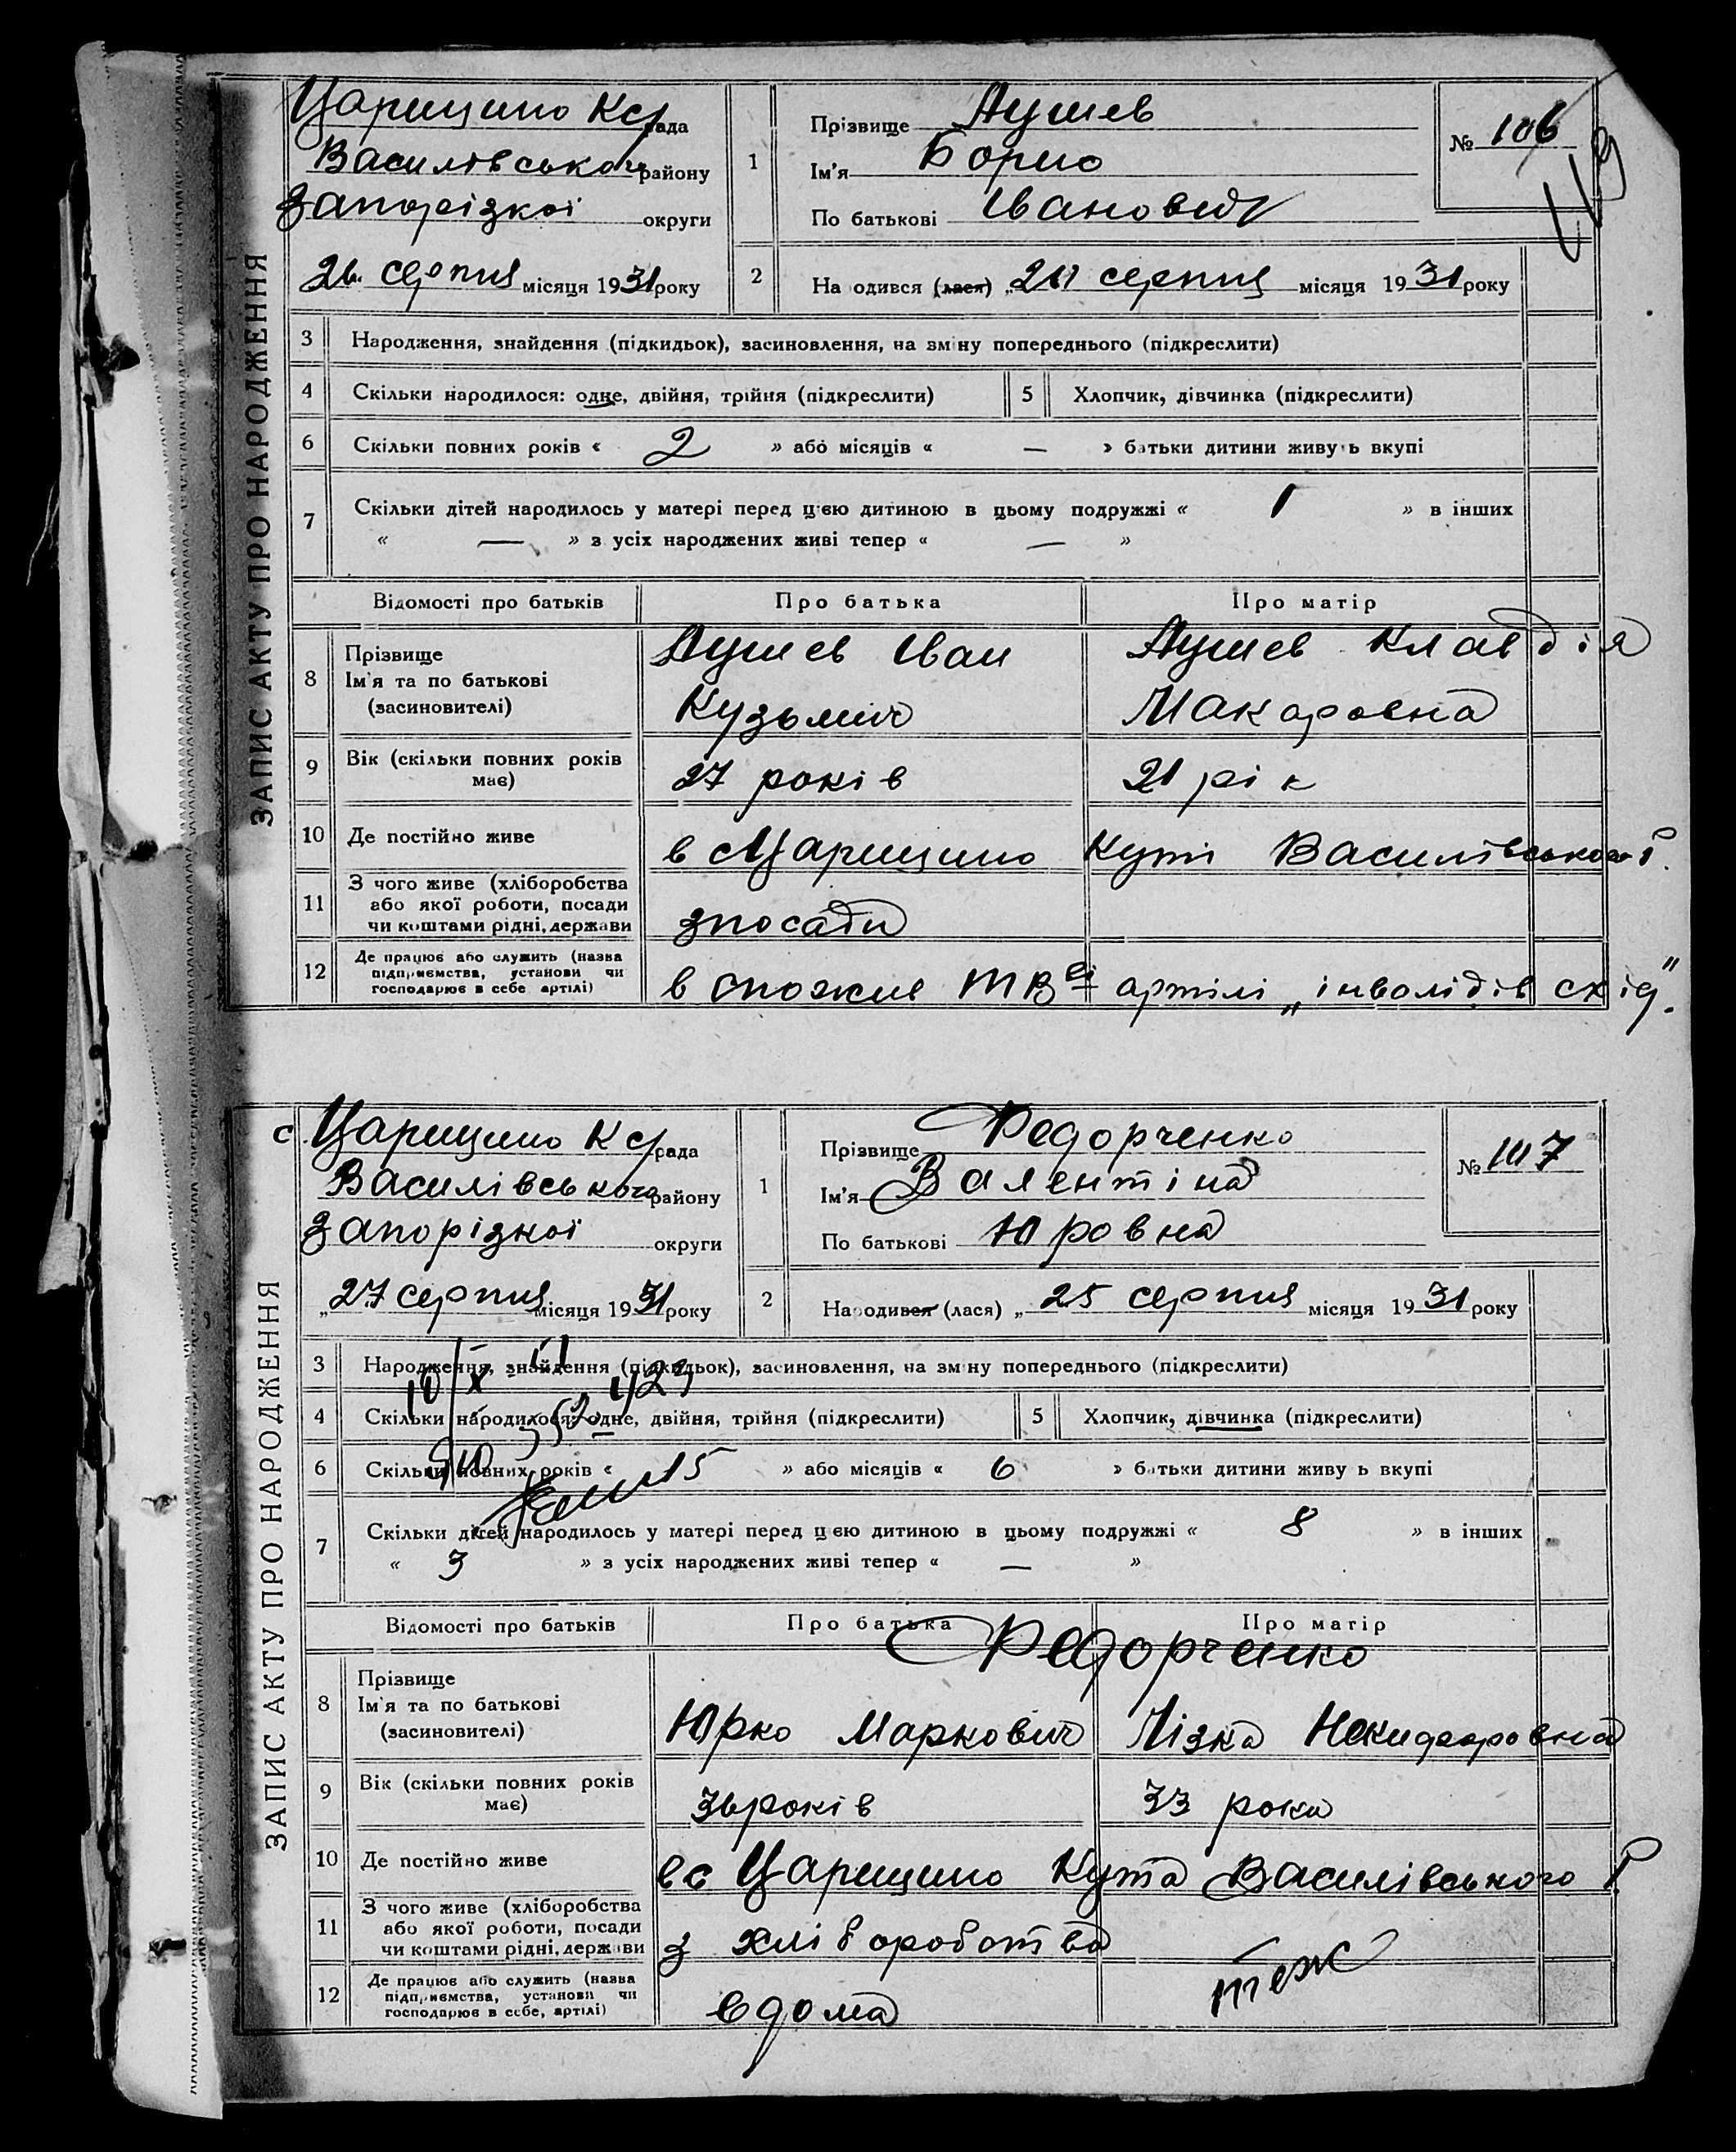 ЗАПИС АКТУ ПРО НАРОДЖЕННЯ
Царицино К ср рада
Василівського району
Запорізкої округи
26 серпня місяця 1931 року
1 Прізвище
Ім'я Борис
По батькові Іванович
№ 106
2 На одився (лася) „ серпня місяця 1931 року
3 Народження, знайдення (підкидьок), засиновлення, на зміну попереднього (підкреслити)
4 Скільки народилося: одне, двійня, трійня (підкреслити) 5 Хлопчик, дівчинка (підкреслити)
6 Скільки повних років « 2 » або місяців « — » батьки дитини живуть вкупі
7 Скільки дітей народилось у матері перед цією дитиною в цьому подружжі « 1 » в інших
« — » з усіх народжених живі тепер « — »
Відомості про батьків Про батька Про матір
8 Прізвище
Ім'я та по батькові
(засиновителі)
Іван
Кузьмич
Клавдія
Макаровна
9 Вік (скільки повних років має) 27 років 21 рік
10 Де постійно живе в с Царицино Куті Василівського р.
11 З чого живе (хліборобства або якої роботи, посади чи коштами рідні, держави
з посади
12 Де працює або служить (назва підприємства, установи чи господарює в себе артілі)
в артілі „інвалідів схід".
ЗАПИС АКТУ ПРО НАРОДЖЕННЯ
с. Царицино К ср рада
Василівського району
Запорізкої округи
„27 серпня місяця 1931 року
1 Прізвище Федорченко
Ім'я Валентіна
По батькові Юровна
№ 107
2 Народився (лася) „ 25 серпня місяця 1931 року
3 Народження, знайдення (підкидьок), засиновлення, на зміну попереднього (підкреслити)
4 Скільки народилося: одне, двійня, трійня (підкреслити) 5 Хлопчик, дівчинка (підкреслити)
6 Скільки повних років « 15 » або місяців « 6 » батьки дитини живу ь вкупі
7 Скільки дітей народилось у матері перед цією дитиною в цьому подружжі « 8 » в інших
« 3 » з усіх народжених живі тепер « — »
Відомості про батьків Про батька Про матір
Федорченко
8 Прізвище
Ім'я та по батькові
(засиновителі)
Юрко Маркович Лізка
9 Вік (скільки повних років має) 36 років 33 роки
10 Де постійно живе в с Царицино Кута Василівського р.
11 З чого живе (хліборобства або якої роботи, посади чи коштами рідні, держави
з хліборобства
теж
12 Де працює або служить (назва підприємства, установи чи господарює в себе, артілі)
вдома